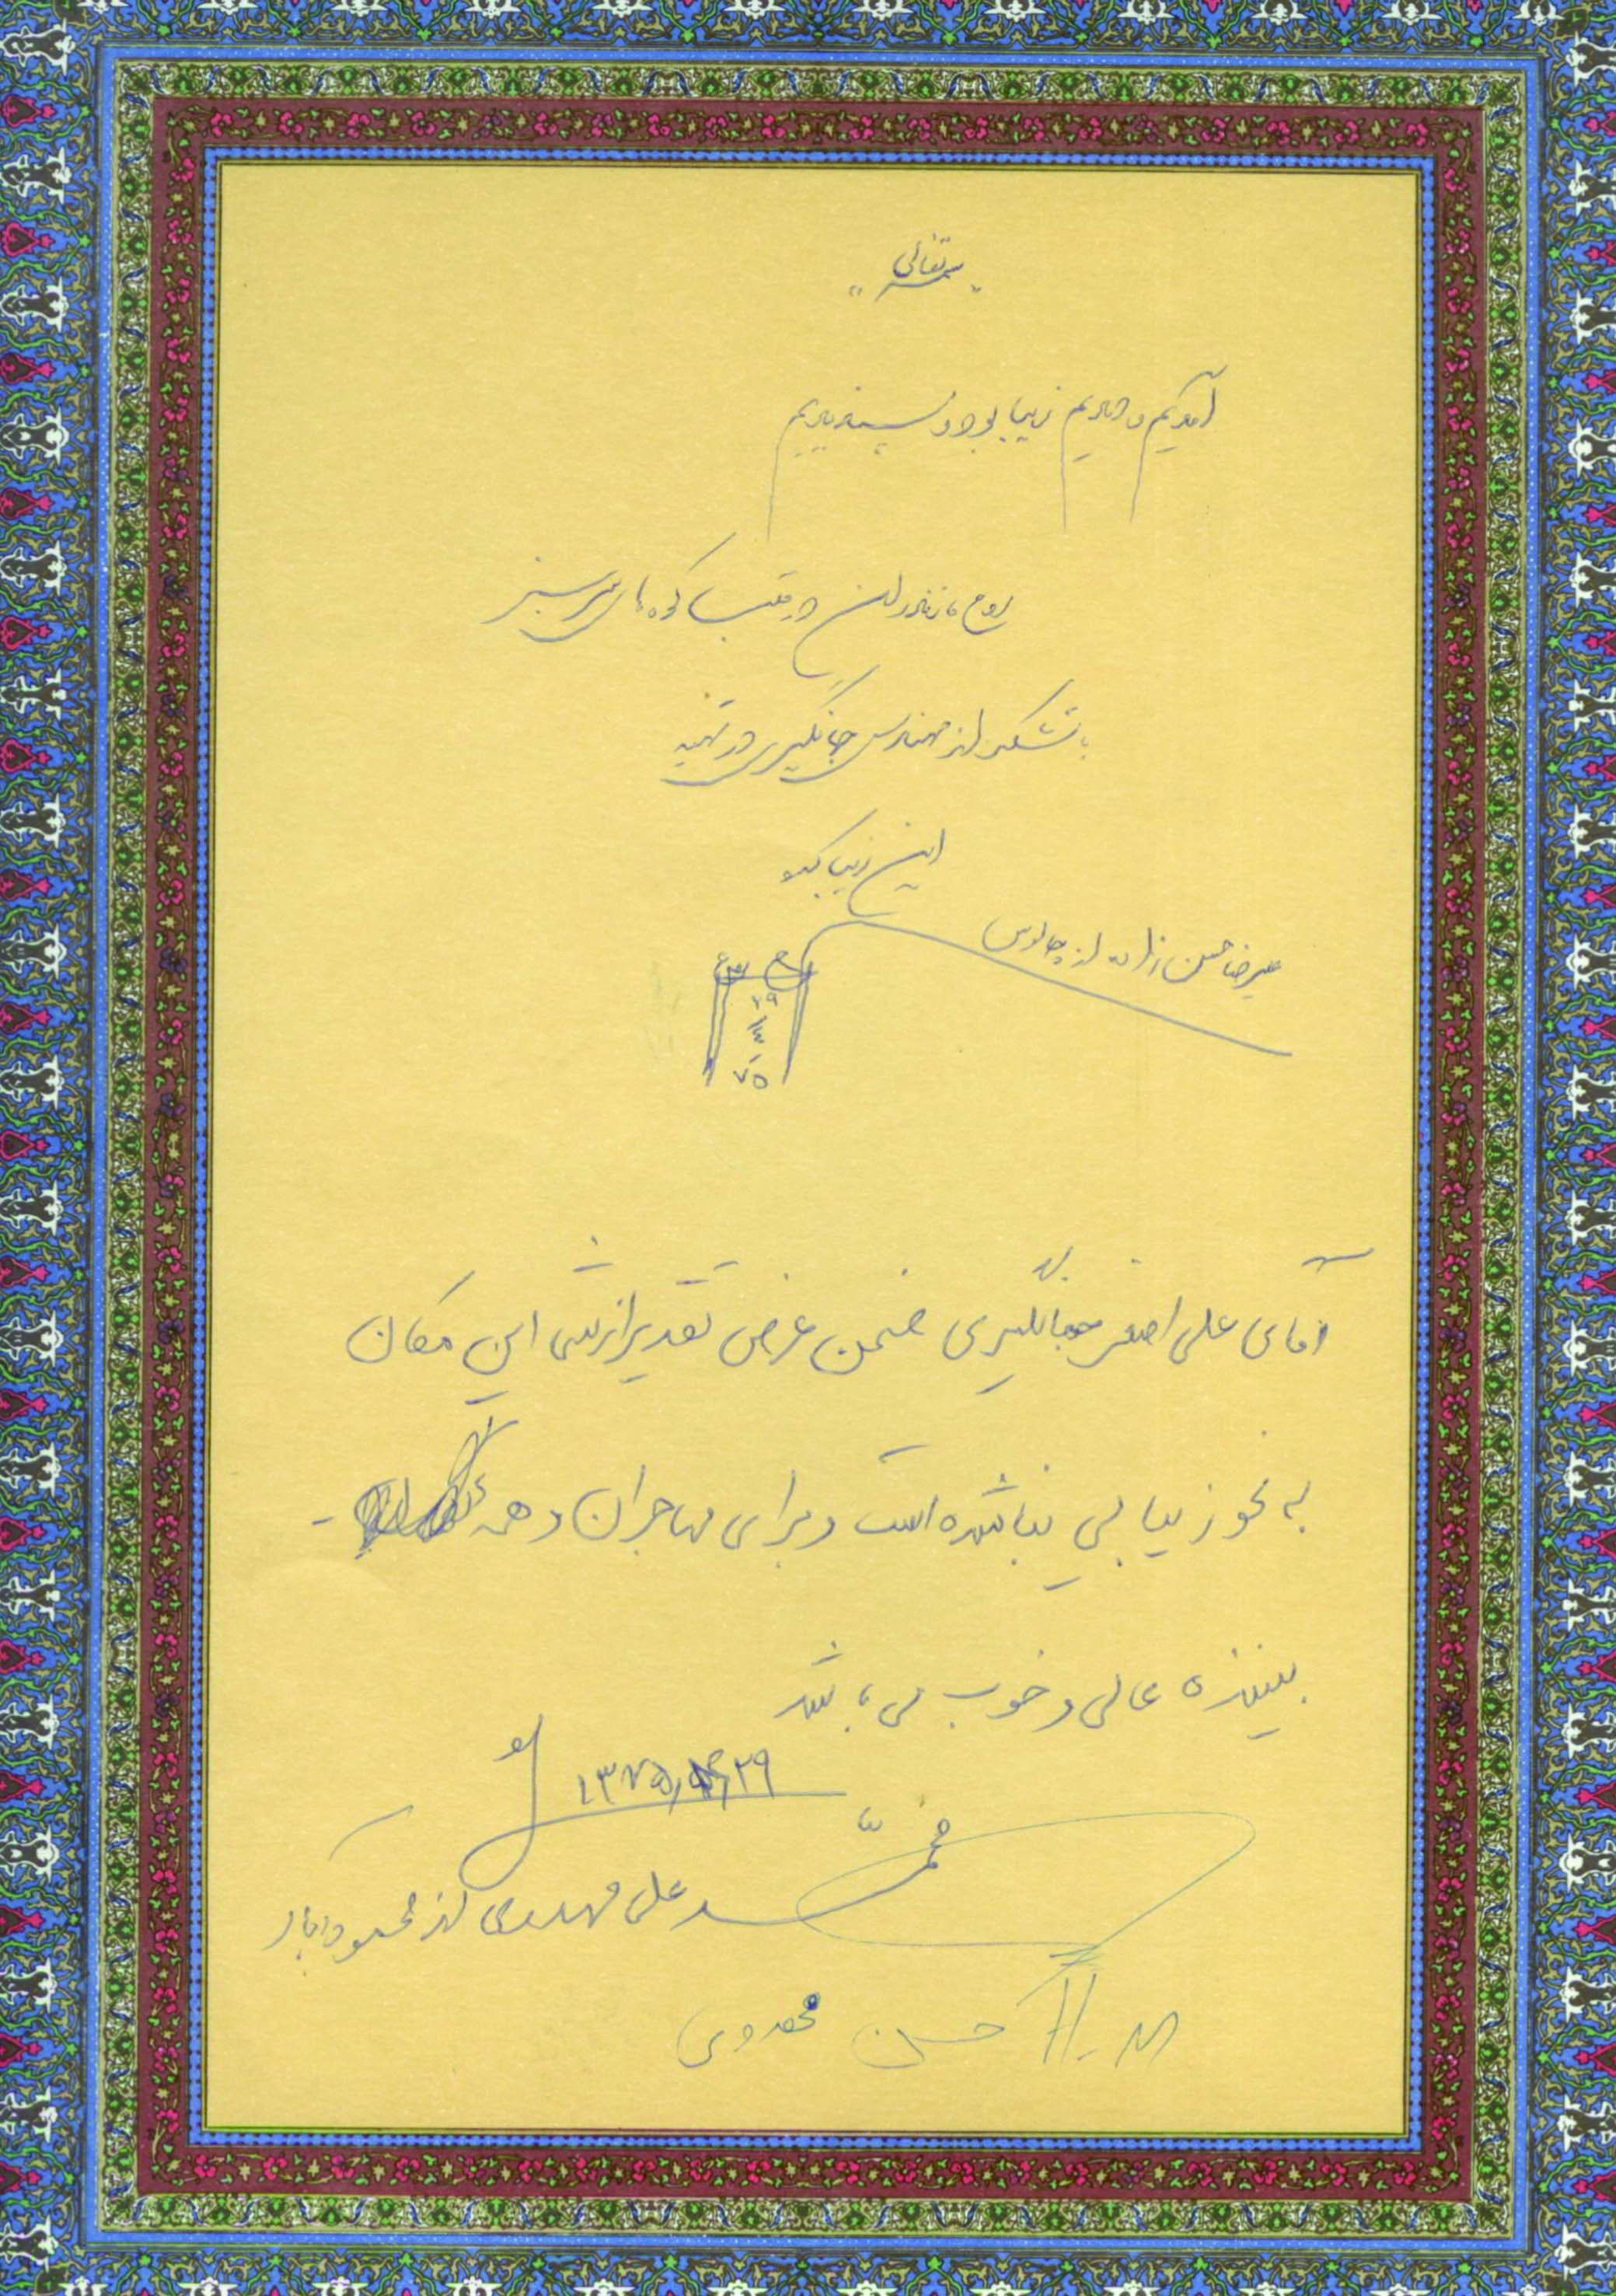 "بسمه تعالی"
آمدیم و دیدیم زیبا بود و پسندیدیم
روح مازندران در قلب کوه های سرسبز
با تشکر از مهندس جهانگیری در تهیه
این زیبا
علیرضا حسن زاده از چالوس
۲۹
۷۵
آقای علی اصغر جهانگیری ضمن عرض تقدیر از شما این مکان
به نحو زیبایی بنا شده است و برای مهاجران و همه
بیننده عالی و خوب می باشد
محمد علی مهدوی از محمودآباد
حسن مهدوی